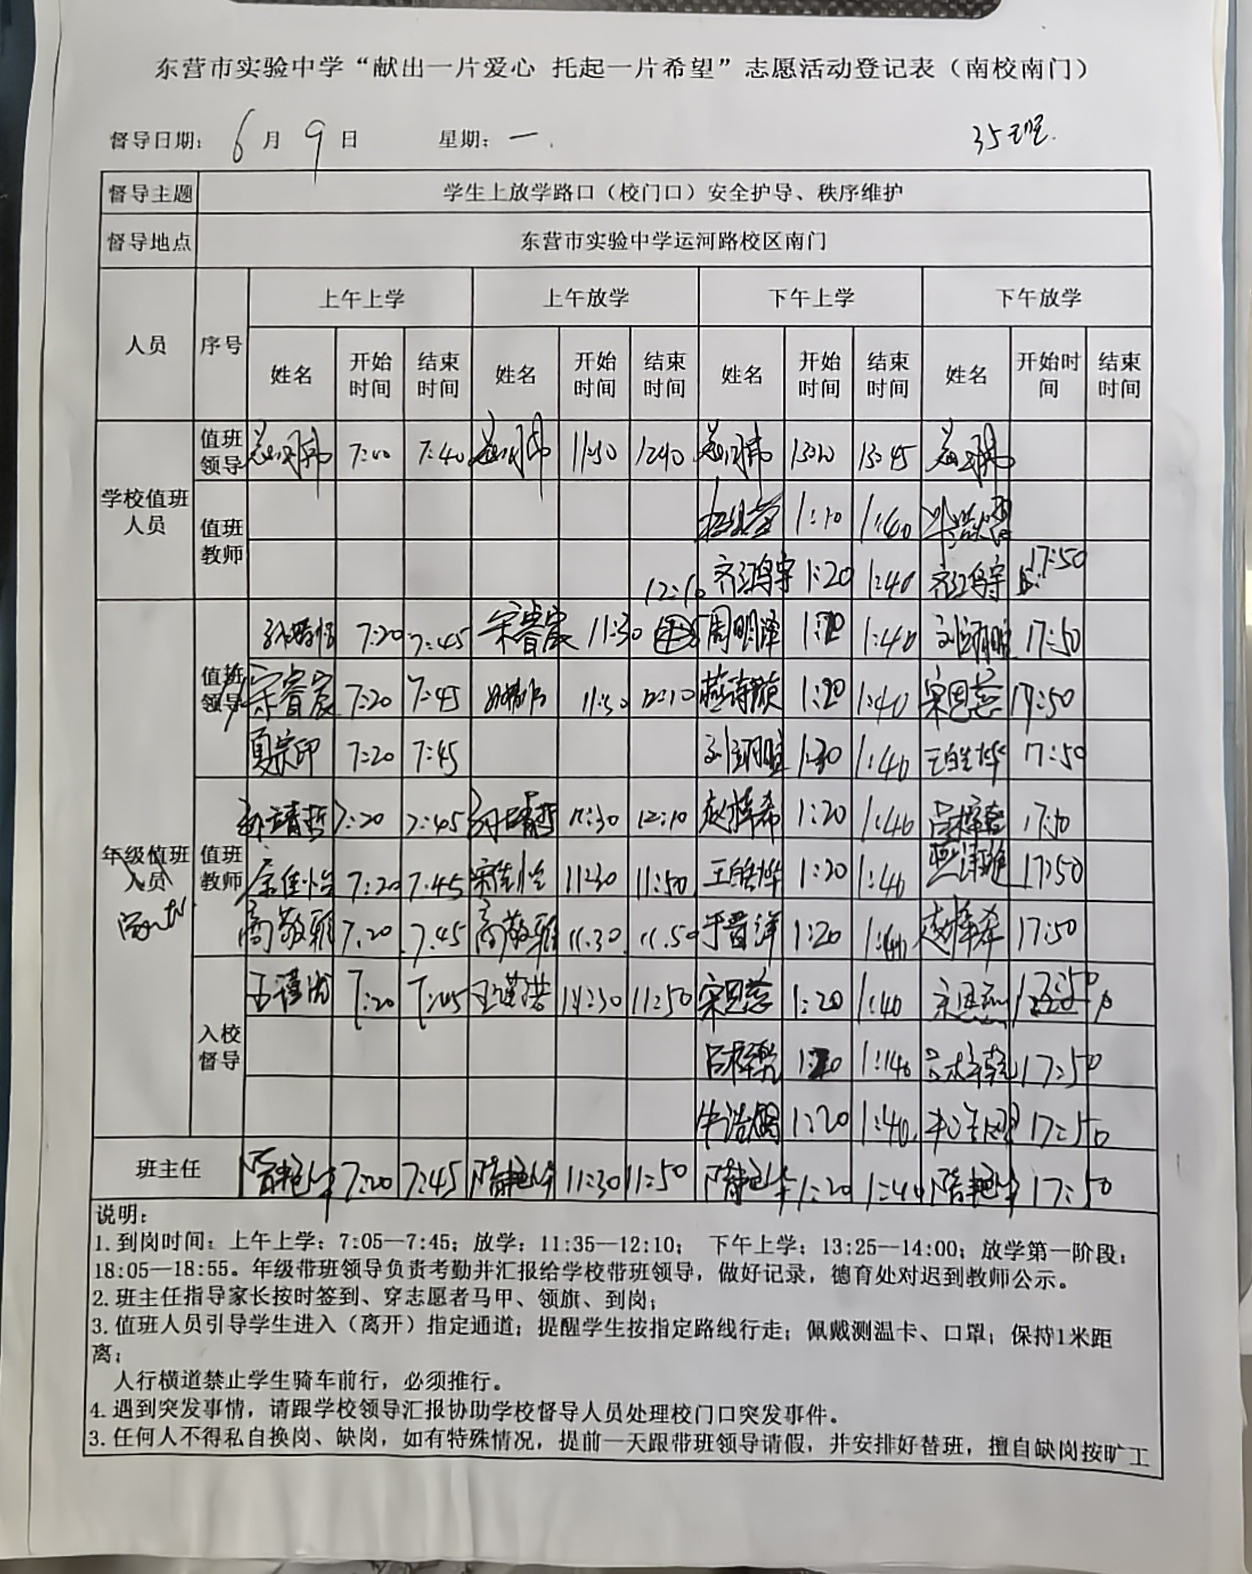 东营市实验中学“献出一片爱心 托起一片希望”志愿活动登记表（南校南门）
督导日期： 6 月 9 日 星期：一. 35班.
督导主题 学生上放学路口（校门口）安全护导、秩序维护
督导地点 东营市实验中学运河路校区南门
人员 序号 上午上学 上午放学 下午上学 下午放学
姓名 开始时间 结束时间 姓名 开始时间 结束时间 姓名 开始时间 结束时间 姓名 开始时间 结束时间
学校值班人员 值班领导 7:40 13:45
值班教师 1:10 1:40
齐鸿宇 1:20 1:40 齐鸿宇 17:50
12:10
值班领导 7:20 7:45 宋睿宸 11:30 周明泽 1:20 1:40 17:50
宋睿宸 7:20 7:45 11:30 12:10 燕诗颖 1:20 1:40 宋思蕊 17:50
夏宗印 7:20 7:45 1:20 1:40 王皓烨 17:50
年级值班人员 值班教师 孙靖哲 7:20 7:45 孙靖哲 11:30 12:10 赵梓希 1:20 1:40
宗佳怡 7:20 7:45 宗佳怡 11:30 11:50 王皓烨 1:20 1:40 17:50
高敬雅 7.20 7.45 高敬雅 11.30 11.50 于晋洋 1:20 1:40 赵梓希 17:50
入校督导 7:20 7:45 11:30 11:50 宋思蕊 1:20 1:40 宋思蕊 17:50
吕梓乾 1:20 1:40 吕梓乾 17:50
1:20 1:40. 17:50
班主任 隋艳华 7:20 7:45 隋艳华 11:30 11:50 隋艳华 1:20 1:40 隋艳华 17:50
说明：
1. 到岗时间：上午上学：7:05—7:45；放学：11:35—12:10； 下午上学：13:25—14:00；放学第一阶段：
18:05—18:55。年级带班领导负责考勤并汇报给学校带班领导，做好记录，德育处对迟到教师公示。
2. 班主任指导家长按时签到、穿志愿者马甲、领旗、到岗；
3. 值班人员引导学生进入（离开）指定通道；提醒学生按指定路线行走；佩戴测温卡、口罩；保持1米距
离；
人行横道禁止学生骑车前行，必须推行。
4. 遇到突发事情，请跟学校领导汇报协助学校督导人员处理校门口突发事件。
3. 任何人不得私自换岗、缺岗，如有特殊情况，提前一天跟带班领导请假，并安排好替班，擅自缺岗按旷工